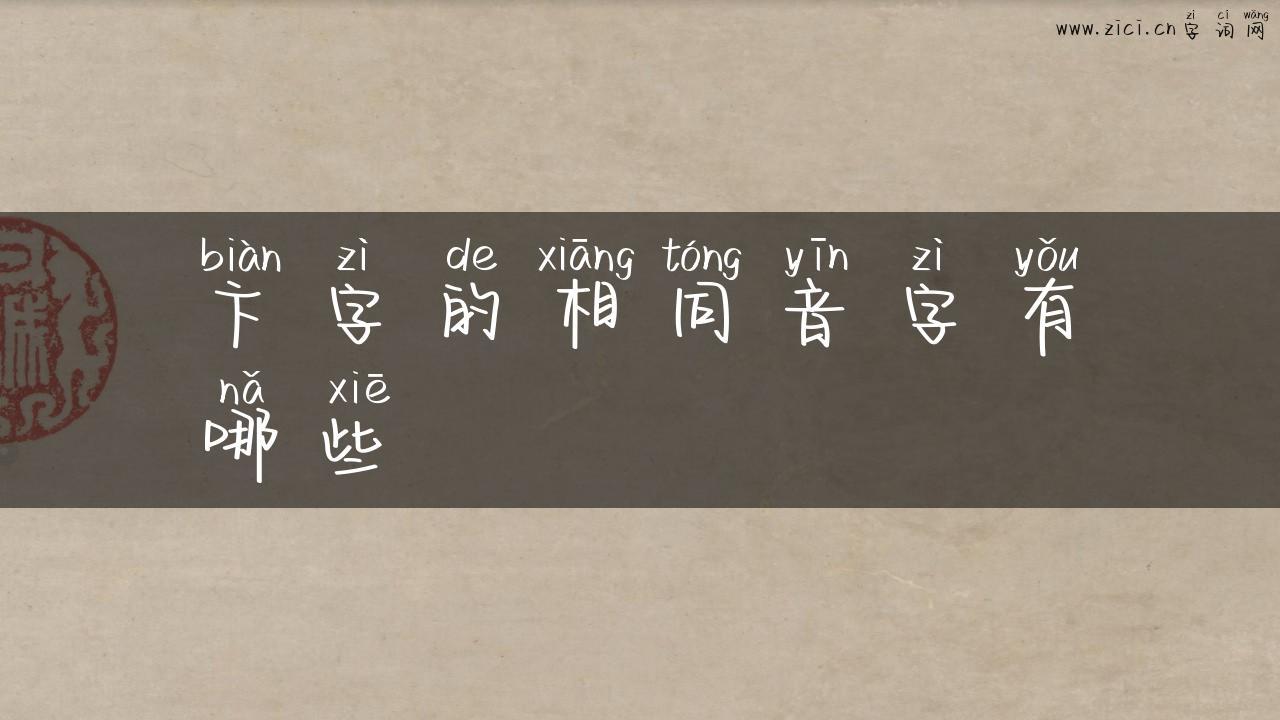 zì cí wǎng
www.zici.cn 字 词 网
biàn zì de xiāng tóng yīn zì yǒu
卞 字 的 相 同 音 字 有
nǎ xiē
哪 些